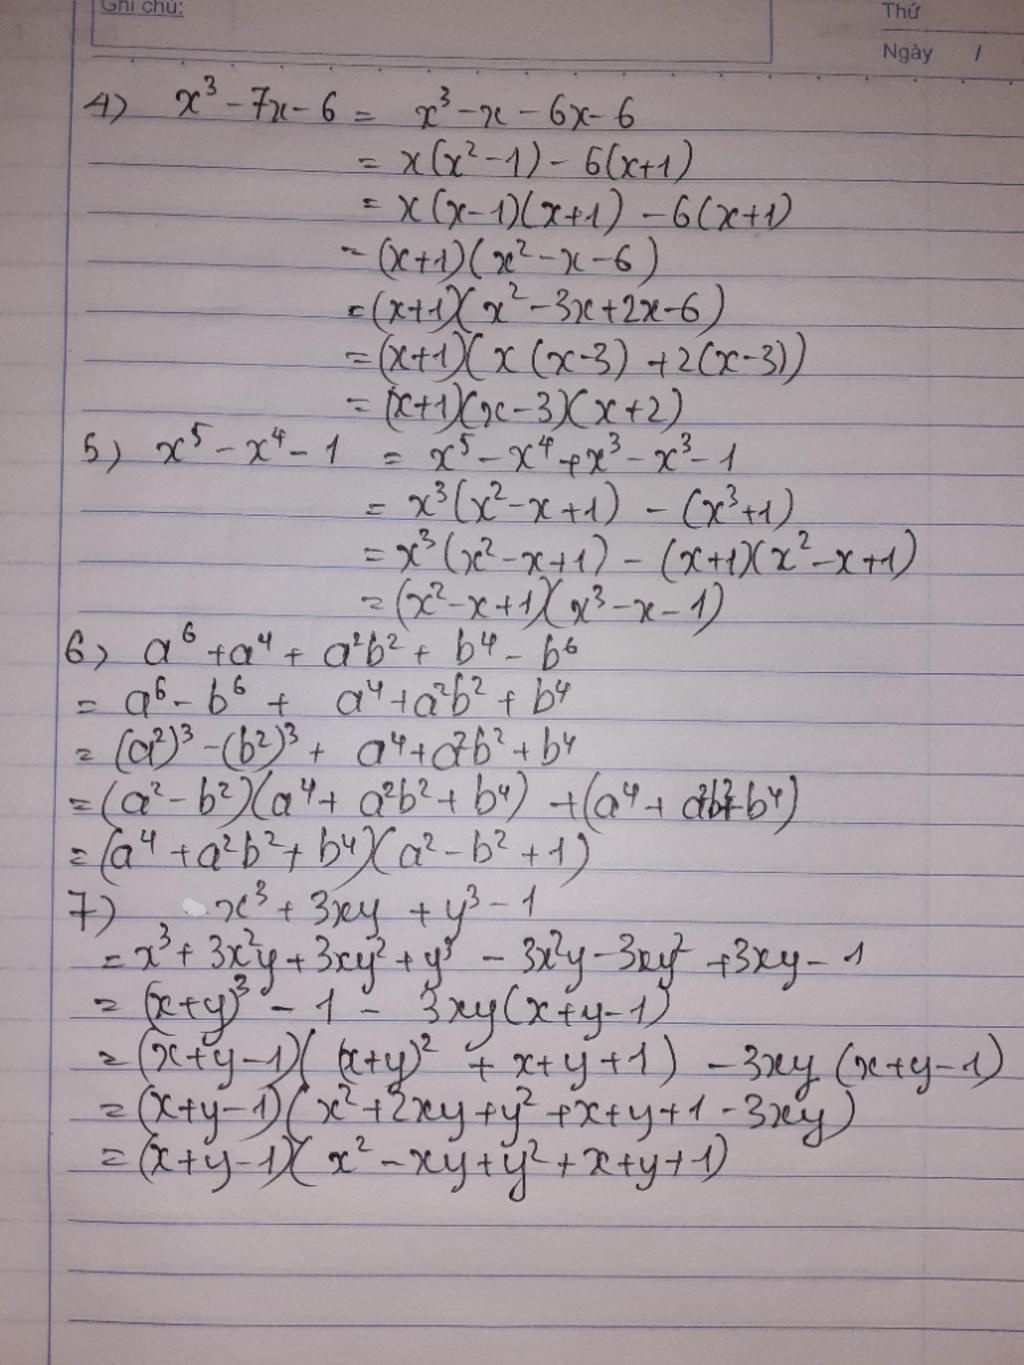 Ghi chú:
Thứ
Ngày /
4) x³ - 7x - 6 = x³ - x - 6x - 6
= x(x² - 1) - 6(x+1)
= x(x-1)(x+1) - 6(x+1)
= (x+1)(x² - x - 6)
= (x+1)(x² - 3x + 2x - 6)
= (x+1)(x(x-3) + 2(x-3))
= (x+1)(x-3)(x+2)
5) x⁵ - x⁴ - 1 = x⁵ - x⁴ + x³ - x³ - 1
= x³(x² - x + 1) - (x³+1)
= x³(x² - x + 1) - (x+1)(x² - x + 1)
= (x² - x + 1)(x³ - x - 1)
6) a⁶ + a⁴ + a²b² + b⁴ - b⁶
= a⁶ - b⁶ + a⁴ + a²b² + b⁴
= (a²)³ - (b²)³ + a⁴ + a²b² + b⁴
= (a² - b²)(a⁴ + a²b² + b⁴) + (a⁴ + a²b² + b⁴)
= (a⁴ + a²b² + b⁴)(a² - b² + 1)
7) x³ + 3xy + y³ - 1
= x³ + 3x²y + 3xy² + y³ - 3x²y - 3xy² + 3xy - 1
= (x+y)³ - 1 - 3xy(x+y-1)
= (x+y-1)((x+y)² + x+y+1) - 3xy(x+y-1)
= (x+y-1)(x² + 2xy + y² + x + y + 1 - 3xy)
= (x+y-1)(x² - xy + y² + x + y + 1)